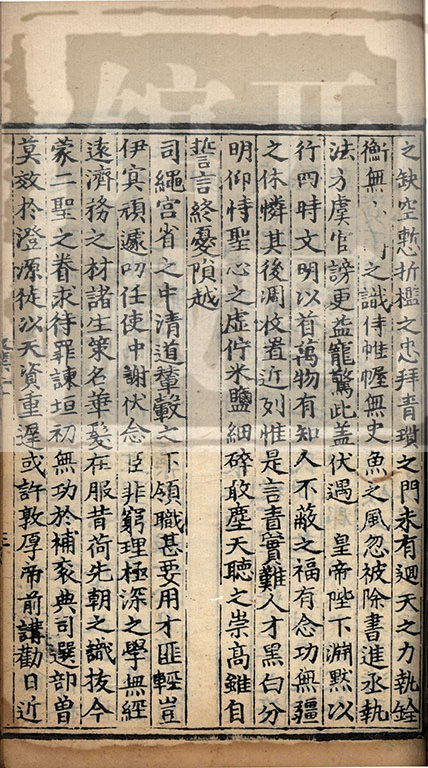 之缺空慙折檻之忠拜青瑣之門未有迴天之力執銓
衡無之識侍帷幄無史魚之風忽被除書進丞執
法方虞官謗更益寵驚此盖伏遇　皇帝陛下淵默以
行四時文明以首萬物有知人不蔽之福有念功無疆
之休憐其後凋收置近列惟是言責實難人才黑白分
明仰恃聖心之虛佇米鹽細碎敢塵天聽之崇高雖自
誓言終憂隕越
司繩宫省之中清道輦轂之下領職甚要用才匪輕豈
伊冥頑遽叨任使中謝伏念臣非窮理極深之學無經
遠濟務之材諸生策名華髮在服昔荷先朝之識拔今
蒙二聖之眷求待罪諫垣初無功於補衮典司選部曽
莫效於澄源徒以天資重遲或許敦厚帝前講勸日近